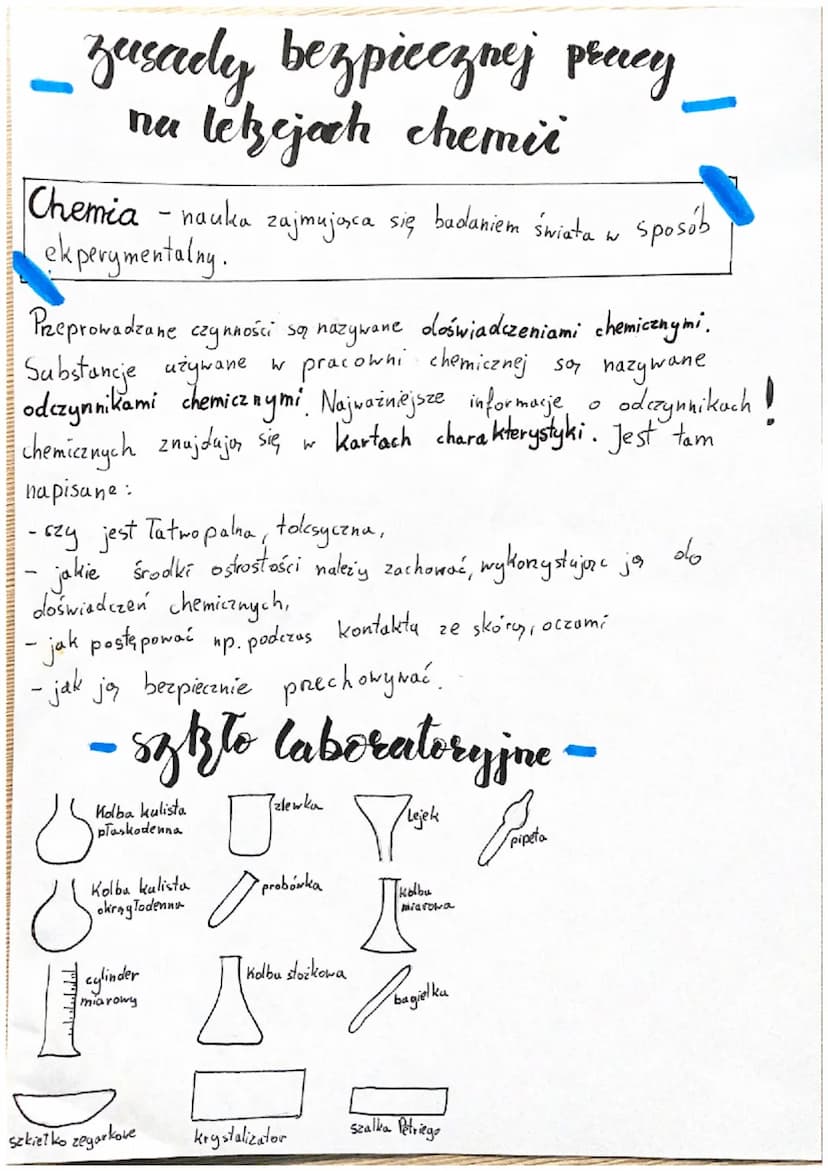 zasady bezpiecznej pracy
na lekcjach chemii
Chemia - nauka zajmująca się badaniem świata w sposób
ekperymentalny.
Przeprowadzane czynności są nazywane doświadczeniami chemicznymi.
Substancje używane w pracowni chemicznej są nazywane
odczynnikami chemicznymi. Najważniejsze informacje o odczynnikach !
chemicznych znajdują się w kartach charakterystyki. Jest tam
napisane:
- czy jest łatwopalna, toksyczna,
- jakie środki ostrostości należy zachować, wykorzystując ją do
doświadczeń chemicznych,
- jak postępować np. podczas kontaktu ze skórą, oczami
- jak ją bezpiecznie przechowywać.
- szkło laboratoryjne -
Kolba kulista
płaskodenna
zlewka
Lejek
pipeta
Kolba kulista
okrągłodenna
probówka
kolba
miarowa
cylinder
miarowy
Kolba stożkowa
bagietka
szkiełko zegarkowe
krystalizator
szalka Petriego